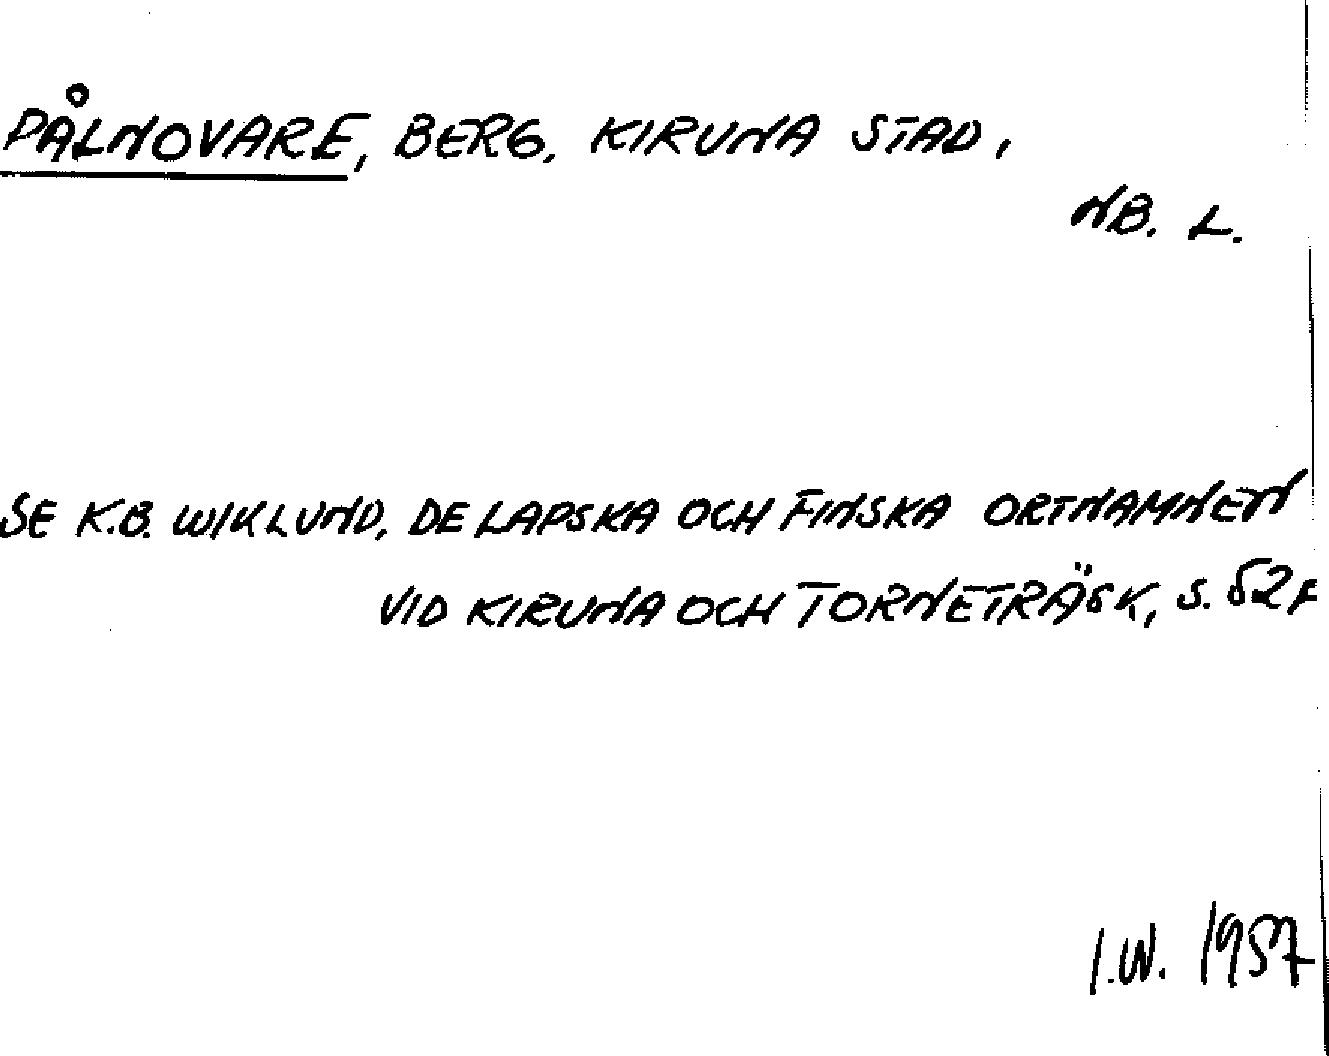 PÅLNOVARE, BERG, KIRUNA STAD,
NB. L.
SE K.B. WIKLUND, DE LAPSKA OCH FINSKA ORTNAMNEN
VID KIRUNA OCH TORNETRÄSK, S. 52F
I.W. 1957